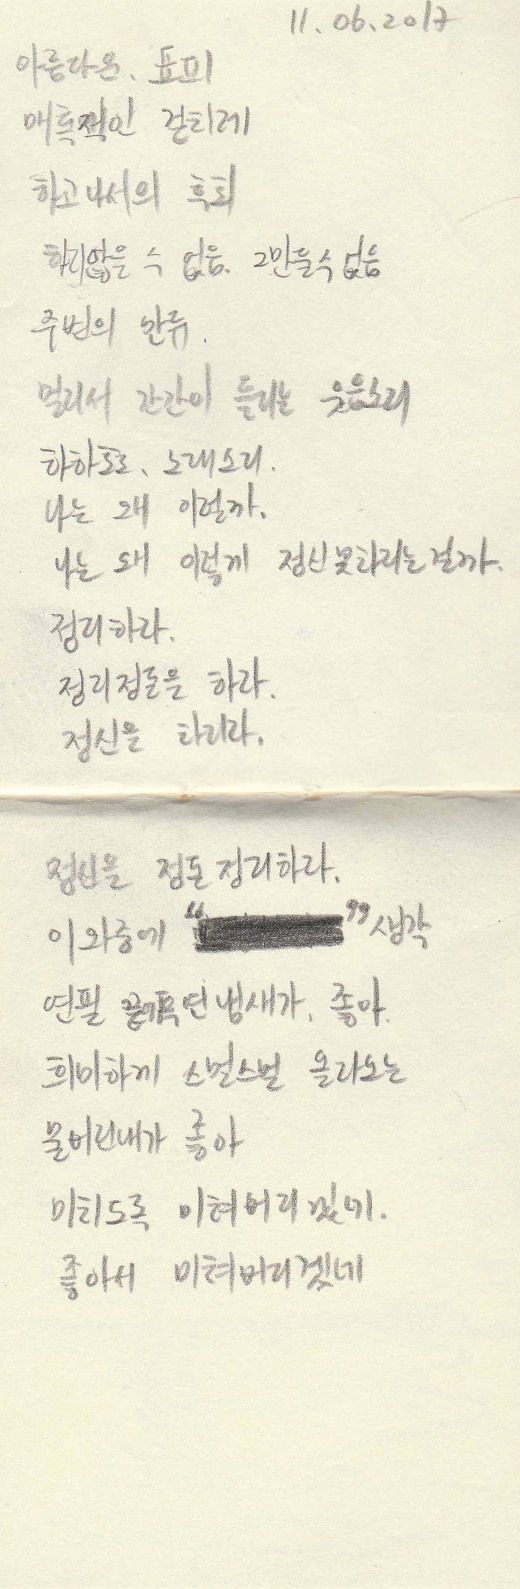 11.06.2017
아름다운, 표피
매혹적인 걷치레
하고나서의 후회
하지않을 수 없음. 그만둘수없음
주변의 만류.
멀리서 간간이 들리는 웃음소리
하하호호, 노래소리.
나는 왜 이럴까.
나는 왜 이렇게 정신못차리는걸까.
정리하라.
정리정돈을 하라.
정신을 차리라.
정신을 정돈정리하라.
이와중에 "" 생각
연필 냄새가, 좋아.
희미하게 스멀스멀 올라오는
물비린내가 좋아
미치도록 미쳐버리겠네.
좋아서 미쳐버리겠네